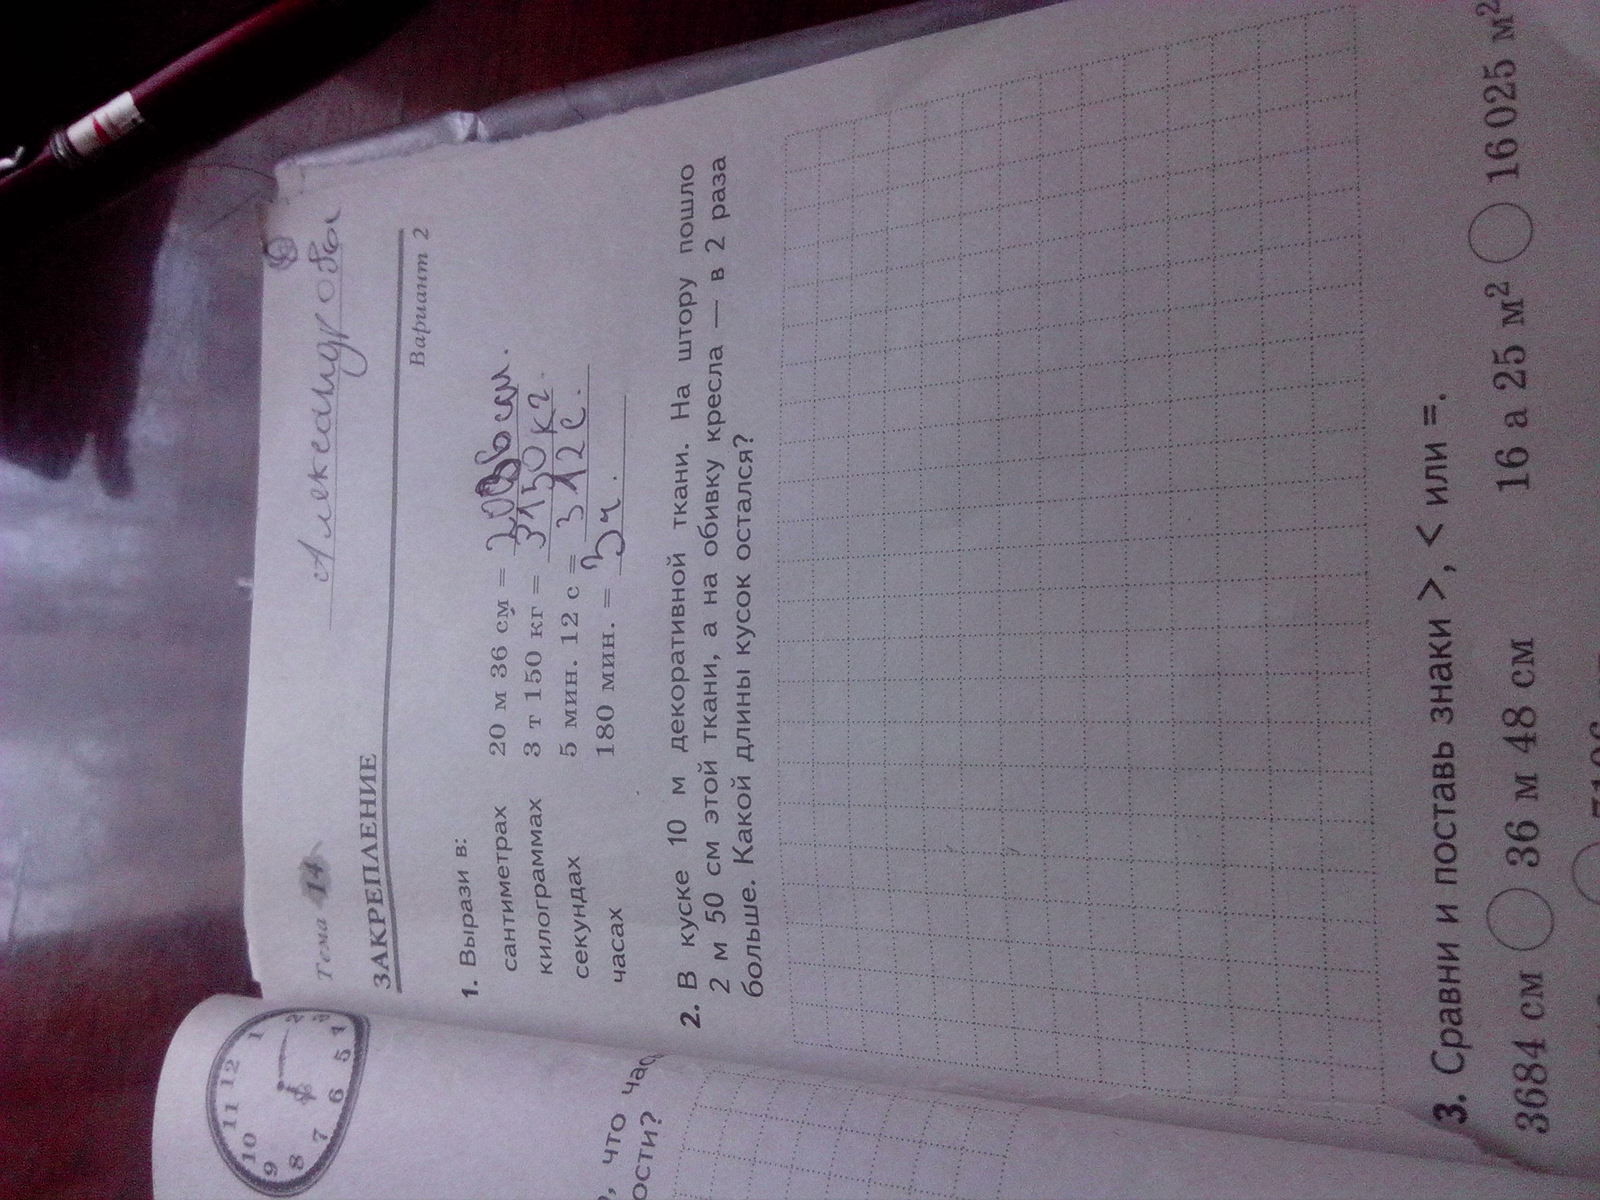 Александровы
Тема 14
ЗАКРЕПЛЕНИЕ
Вариант 2
1. Вырази в:
сантиметрах 20 м 36 см = 2036 см.
килограммах 3 т 150 кг = 3150 кг.
секундах 5 мин. 12 с = 312 с.
часах 180 мин. = 3 ч.
2. В куске 10 м декоративной ткани. На штору пошло
2 м 50 см этой ткани, а на обивку кресла — в 2 раза
больше. Какой длины кусок остался?
3. Сравни и поставь знаки >, < или =.
3684 см 36 м 48 см 16 а 25 м² 16 025 м²
10 11 12 1
9 2
8 7 6 5 4
, что час
ости?